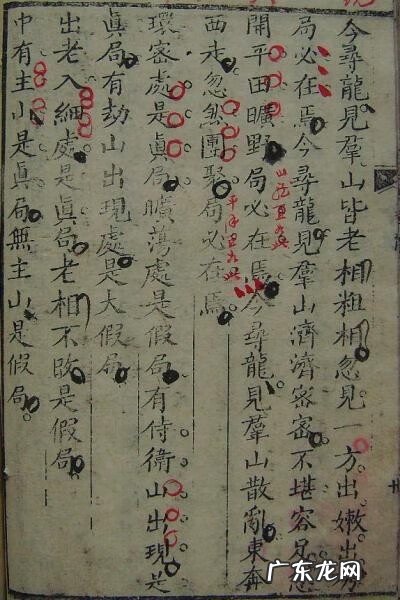 今尋龍見羣山皆老相粗相忽見一方出嫩出
局必在焉今尋龍見羣山濟濟密密不堪容足忽
開平田曠野局必在焉今尋龍見羣山散亂東奔
西走忽然團聚局必在焉
環密處是眞局曠蕩處是假局有侍衛山出現是
眞局有劫山出現處是大假局
出老入細處是眞局老相不改是假局
中有主山是眞局無主山是假局
广东龙网